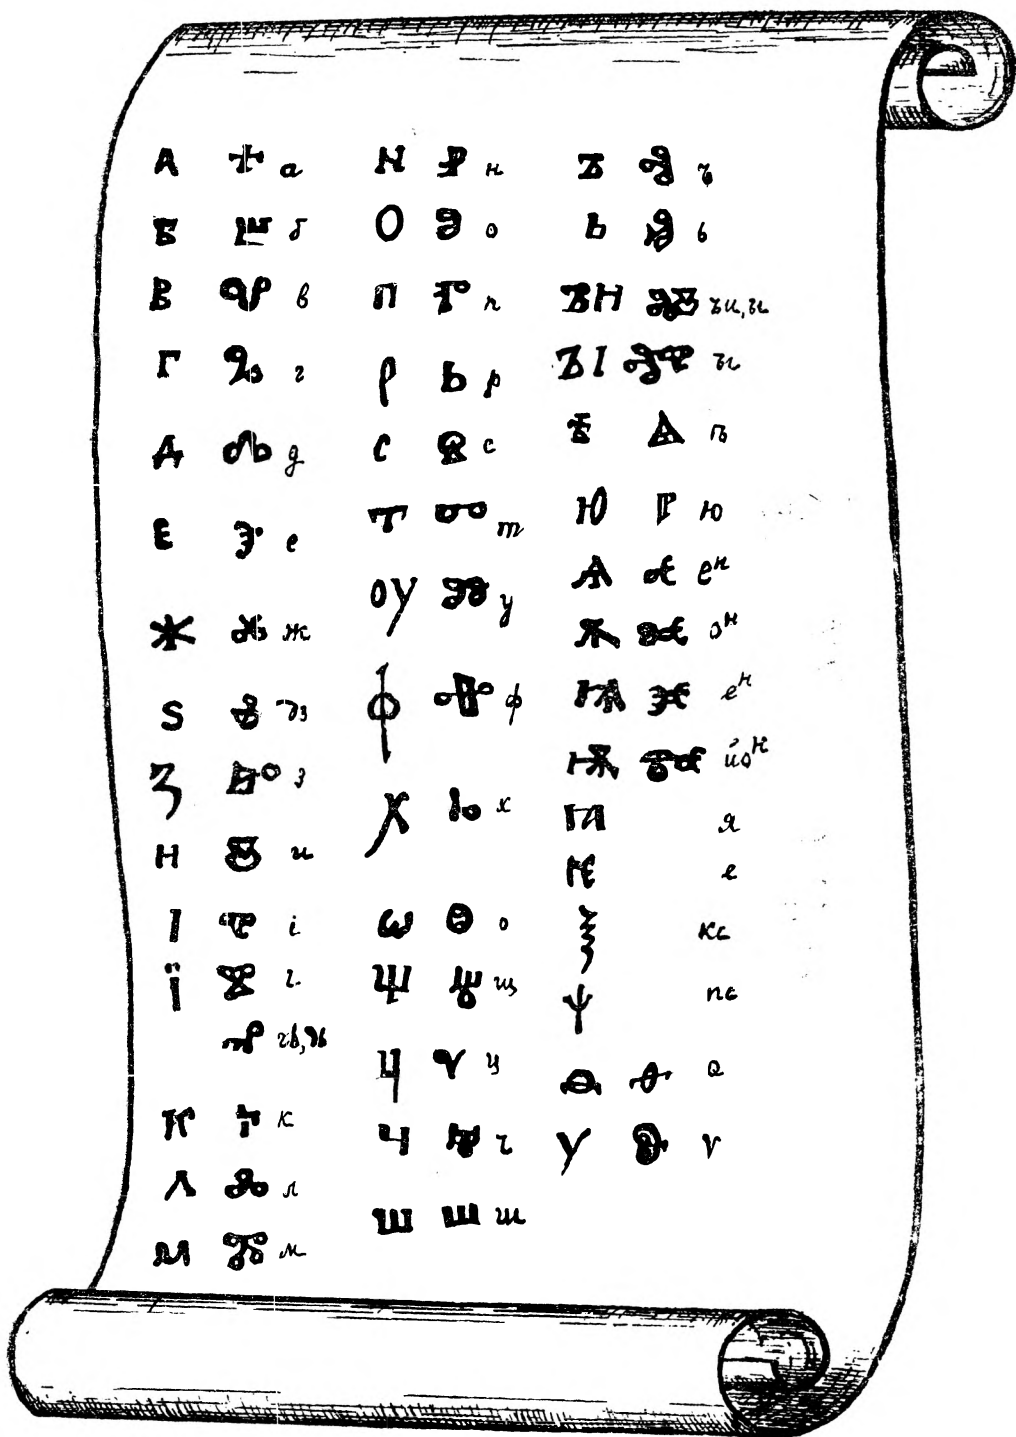 А Ⰰ а
Б Ⰱ б
В Ⰲ в
Г Ⰳ г
Д Ⰴ д
Е Ⰵ е
Ж Ⰶ ж
Ѕ Ⰷ дз
З Ⰸ з
Н Ⰻ и
І Ⰹ і
Ї Ⰺ
Ⰼ
К Ⰽ к
Л Ⰾ л
М Ⰿ м
N Ⱀ н
О Ⱁ о
П Ⱂ п
Р Ⱃ р
С Ⱄ с
Т Ⱅ т
ОУ Ⱆ у
Ф Ⱇ ф
Х Ⱈ х
Ѡ Ⱉ о
Щ Ⱋ щ
Ц Ⱌ ц
Ч Ⱍ ч
Ш Ⱎ ш
Ъ Ⱏ ъ
Ь Ⱐ ь
ЪН ⰟⰋ ъи, ы
ЪІ ⰟⰊ ы
Ѣ Ⱑ ѣ
Ю Ⱓ ю
Ѧ Ⱔ ен
Ѫ Ⱘ он
Ѩ Ⱗ ен
Ѭ Ⱙ йон
Ꙗ я
Ѥ е
Ѯ кс
Ѱ пс
Ѳ Ⱚ ѳ
Ѵ Ⱛ ѵ